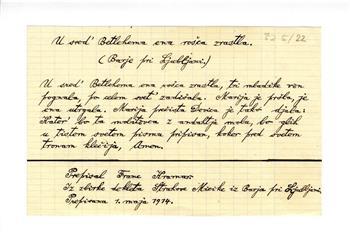 U sred' Betlehema ena rošca zrastla.
(Barje pri Ljubljani.)
U sred' Betlehema ena rošca zrastla, tri mladike ven
pognala, po celem svet' zadišala. Marija je pršla, je
ena utrgala. Marija prečista Devica je tako djala:
Kator' bo ta molitvica z andaltjo molu, bo glih
u tistem svetem pismu pripisan, koker pred svetem
tronam klečijo, Amen.
Prepisal Franc Kramar
iz zbirke dekleta Strahove Micike iz Barja pri Ljubljani.
Prepisana 1. maja 1914.